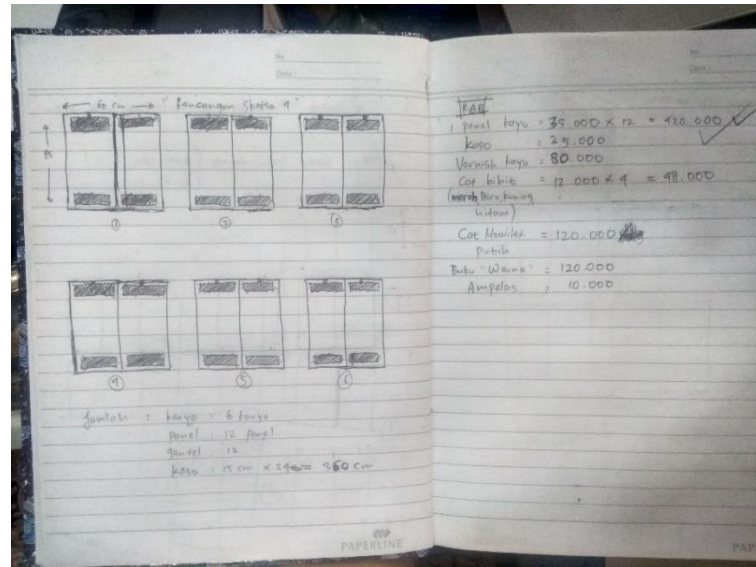 No
Date:
60 cm
" Rancangan Sketsa 4 "
85
1
2
3
4
5
6
Jumlah : karya = 6 karya
panel : 12 panel
gantel : 12
kaso : 15 cm x 24 = 360 cm
PAPERLINE
No
Date:
RAB
1 panel kayu = 35.000 x 12 = 420.000
kaso = 25.000
Vernish kayu = 80.000
Cat bibit = 12 000 x 4 = 48.000
(merah, Biru, kuning
hitam)
Cat Mowilex = 120.000
Putih
Buku "Warna" = 120.000
Ampelas = 10.000
PAP